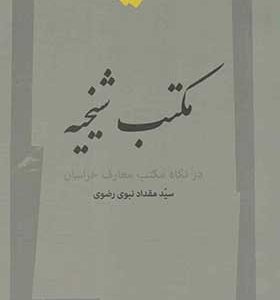 مکتب شیخیه
در نگاه مکتب معارف خراسان
سیّد مقداد نبوی رضوی